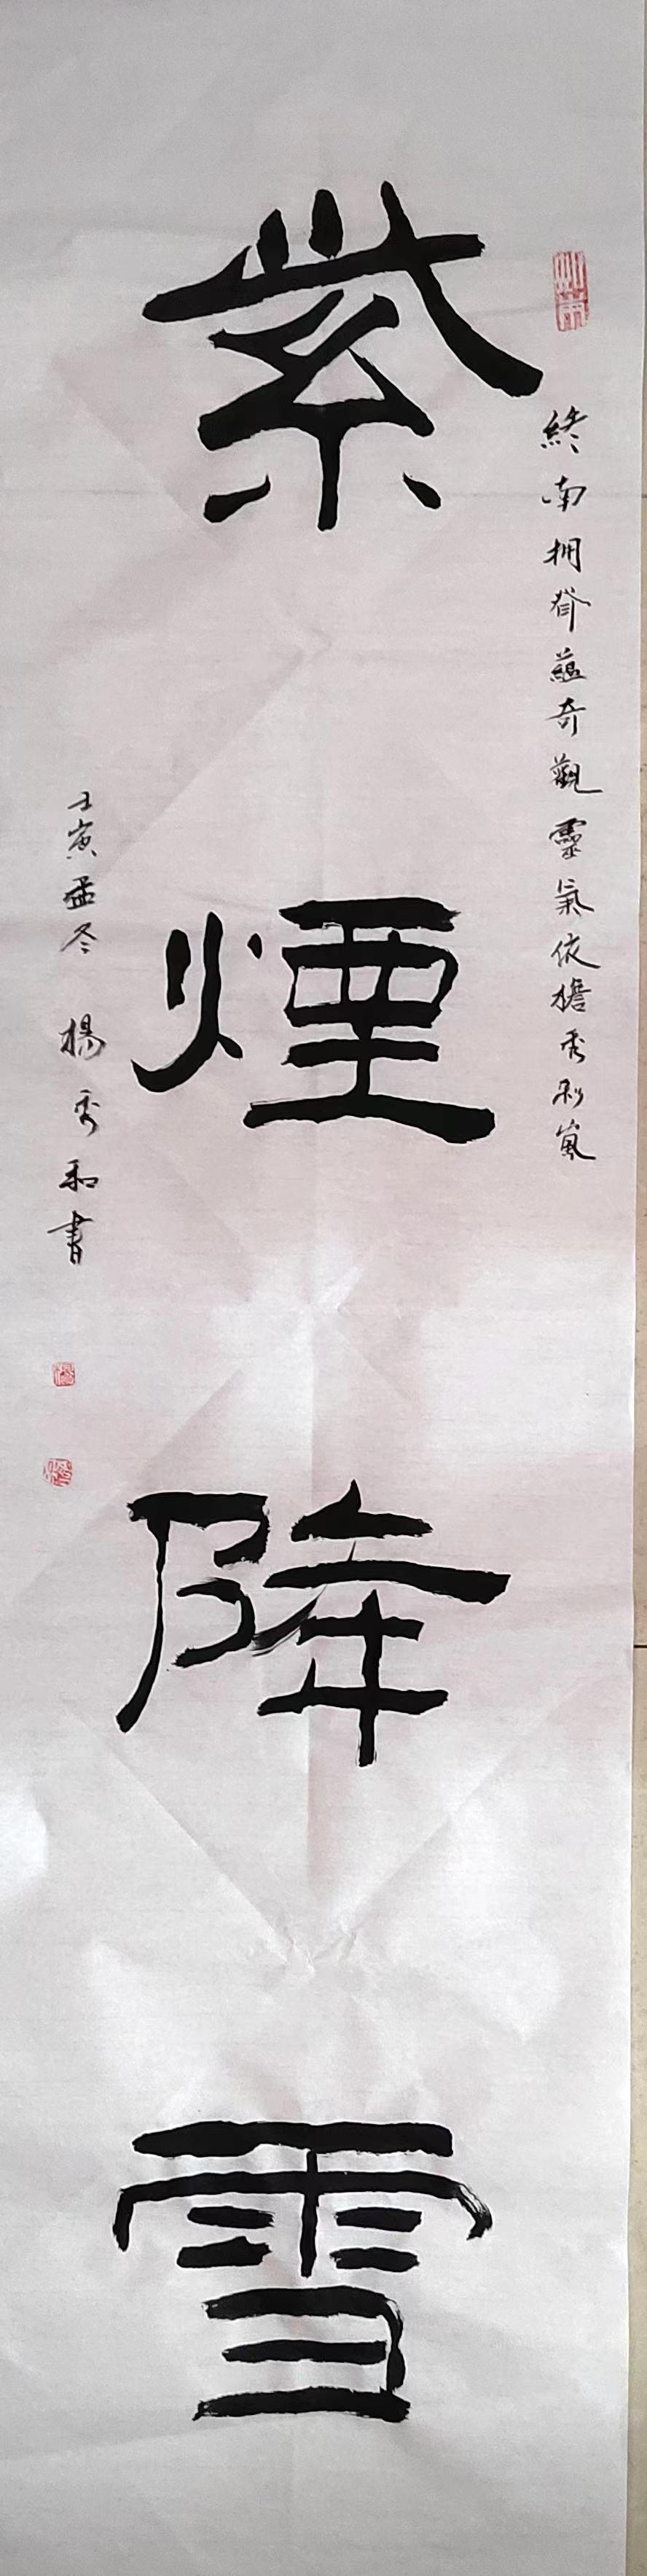 終南拥脊蘊奇觀靈氣依檐秀彩嵐
紫煙降雪
壬寅孟冬 楊秀和書